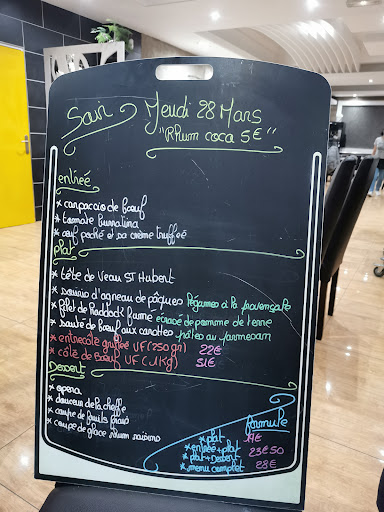 Soir Jeudi 28 Mars
"Rhum coca 5€"
entrée
* carpaccio de bœuf
* tomate burratina
* œuf poché et sa crème truffée
plat
* tête de Veau ST Hubert
* souris d'agneau de pâques légumes à la provençale
* filet de Haddock fumé écrasé de pomme de terre
* sauté de bœuf aux carottes pâtes au parmesan
* entrecôte grillée VF (250 gr) 22€
* côte de Bœuf VF (1Kg) 51€
Dessert
* opera
* douceur de la cheffe
* coupe de fruits frais
* coupe de glace Rhum raisins
formule
* plat 19€
* entrée + plat 23€50
* plat + Dessert
* menu complet 28€